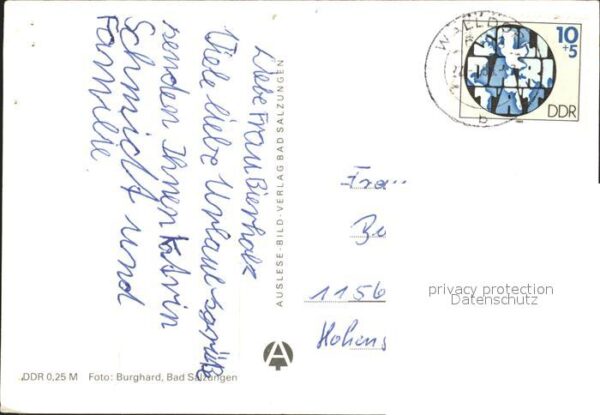 Liebe Frau Bierholz
Viele liebe Urlaubsgrüße
senden Ihnen Katrin
Schmidt und
Familie
AUSLESE-BILD-VERLAG BAD SALZUNGEN
A
WALLDO
b
10
+5
DDR
Frau
Be
1156
Hohens
privacy protection
Datenschutz
DDR 0,25 M Foto: Burghard, Bad Salzungen